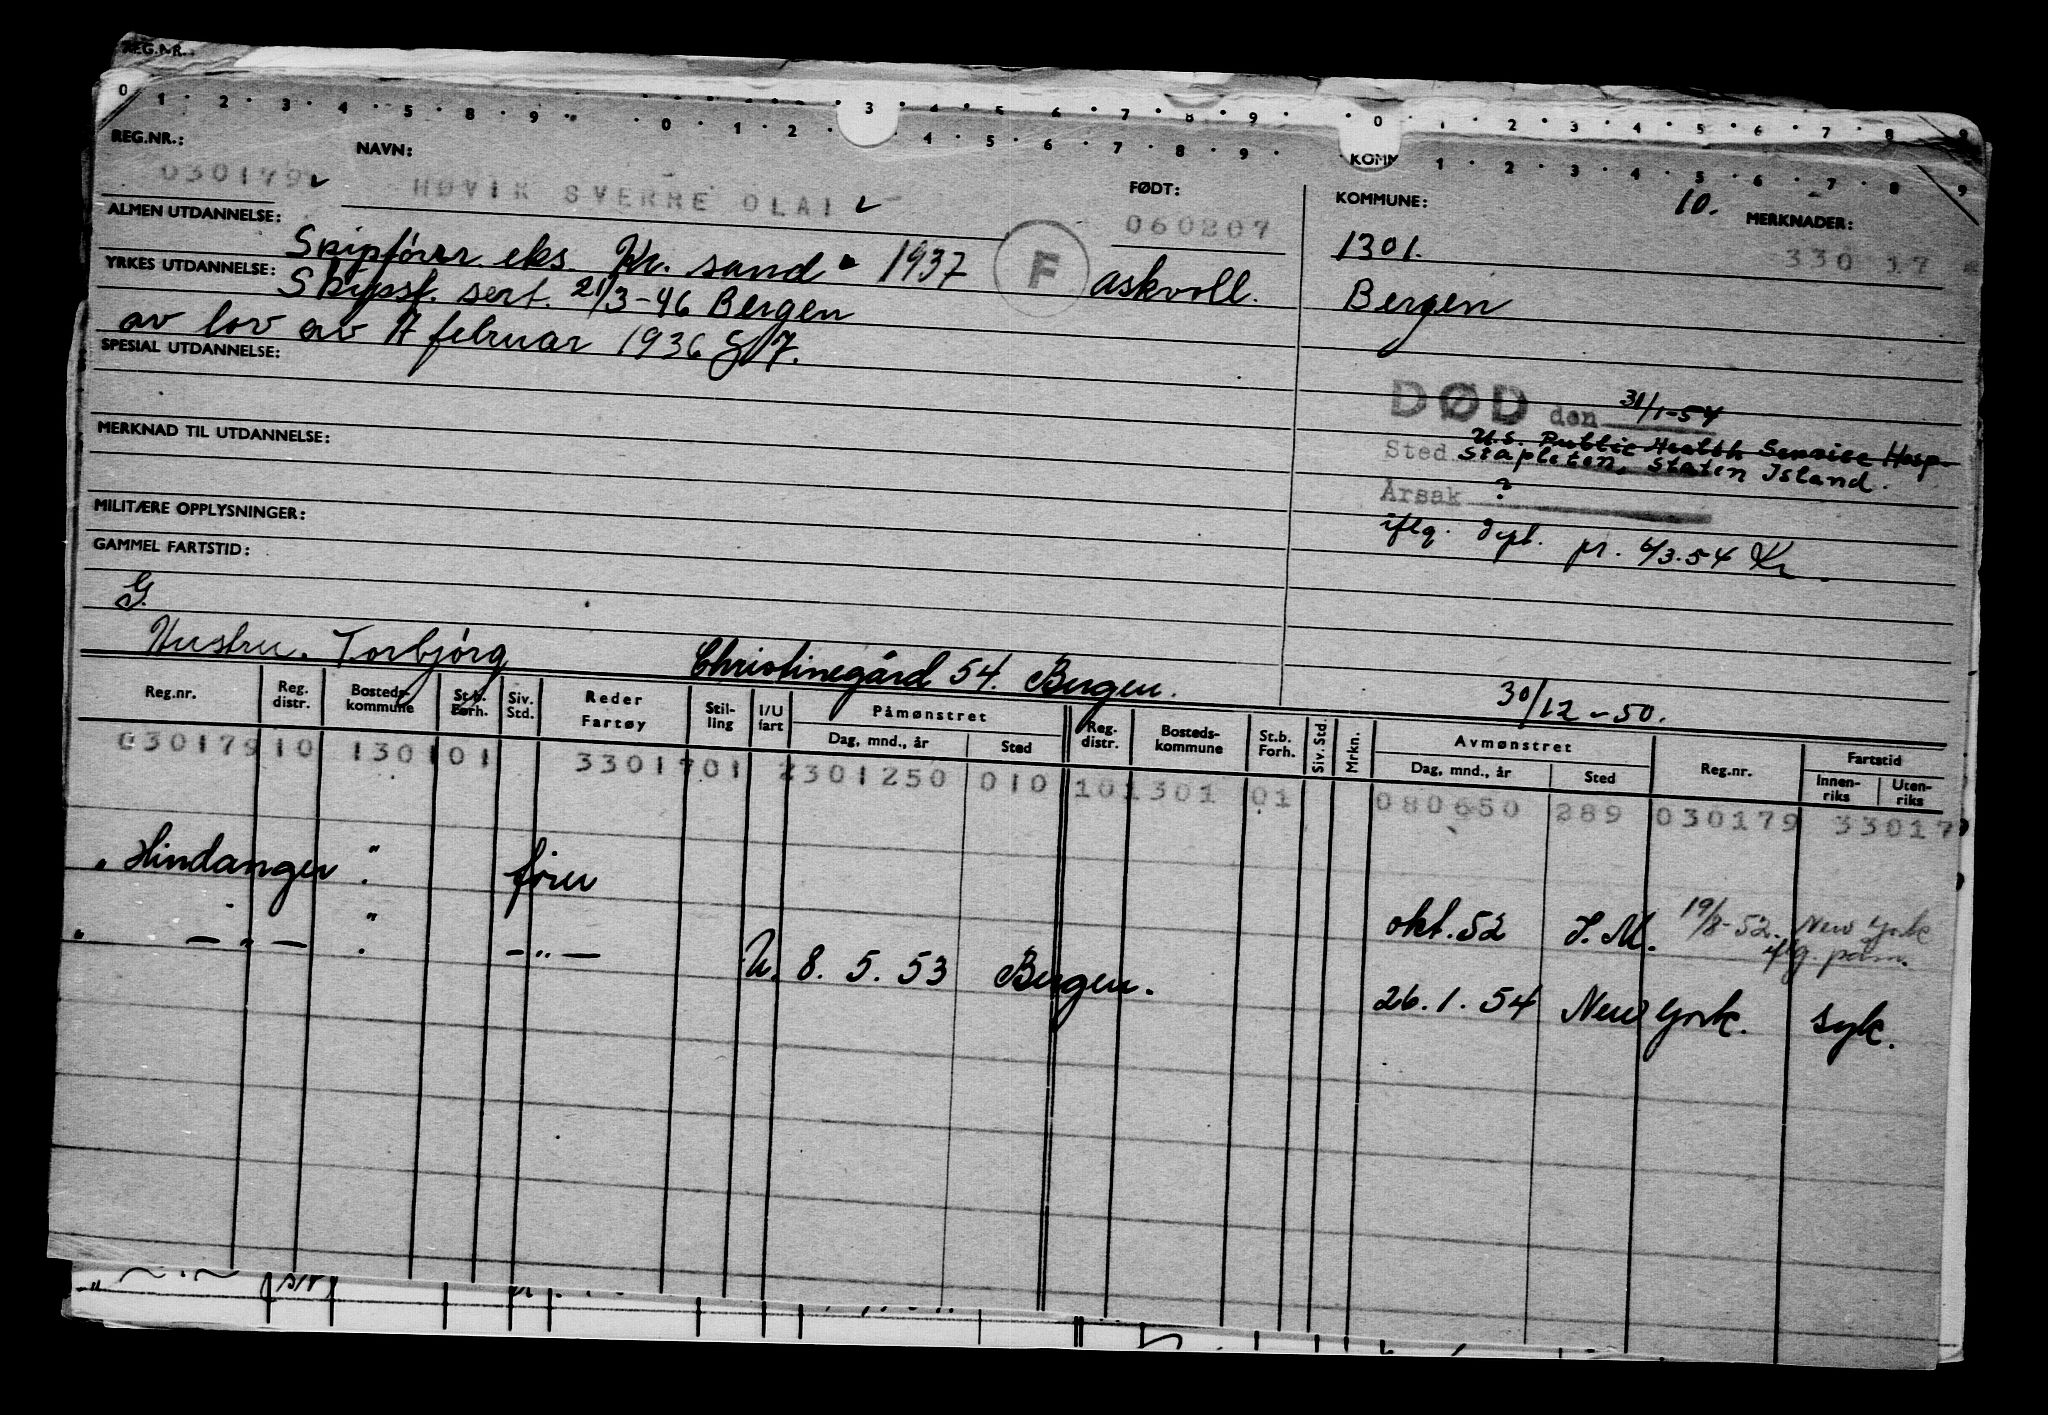 REG.NR.
0 1 2 3 4 5 8 9 0 1 2 3 4 5 6 7 8 9 0 1 2 3 4 5 6 7 8 9
4 5 6 7 8 9 1 2 3 4 5 6 7 8 9
REG.NR.: NAVN: FØDT: KOMMUNE: 10. MERKNADER:
030179 HØVIK SVERRE OLAI 060207 1301. 330 17
ALMEN UTDANNELSE: Skipfører eks. Kr. sand 1937 F askvoll. Bergen
YRKES UTDANNELSE: Skipsf. sert. 21/3-46 Bergen
av lov av 17 februar 1936 § 7.
SPESIAL UTDANNELSE:
DØD den 31/1-54
MERKNAD TIL UTDANNELSE:
Sted U.S. Public Health Service Hosp.
Stapleton, Staten Island.
Årsak ?
iflg. dept. pr. 6/3.54 Kr.
MILITÆRE OPPLYSNINGER:
GAMMEL FARTSTID:
G.
Hustru. Torbjørg Christinegård 54. Bergen. 30/12-50.
Reg.nr. Reg. distr. Bosteds-kommune St.b. Forh. Siv. Std. Reder Fartøy Stil-ling I/U fart Påmønstret Reg. distr. Bosteds-kommune St.b. Forh. Siv. Std. Mrkn. Avmønstret Reg.nr. Fartstid
Dag, mnd., år Sted Dag, mnd., år Sted Innen-riks Uten-riks
030179 10 1301 01 33017 01 2 301250 010 10 1301 01 080650 289 030179 33017
" Hindanger " fører okt. 52 S.M. 19/8-52. New York
iflg. påm.
" — " — " — " — U. 8. 5. 53 Bergen. 26. 1. 54 New York. syk.